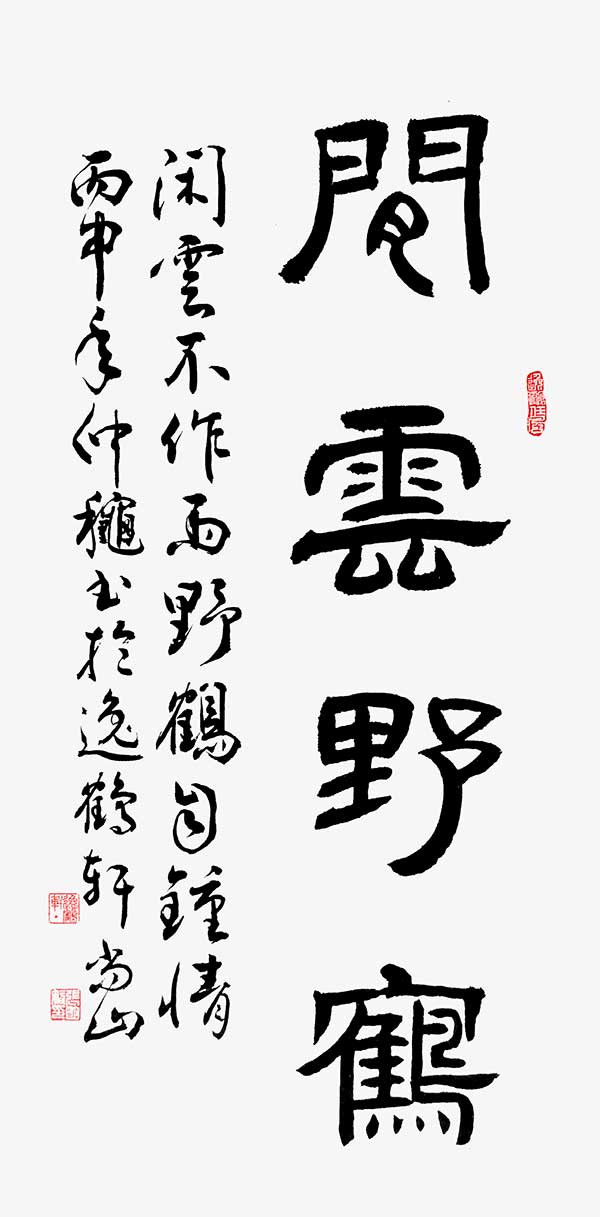 閒雲野鶴
闲雲不作雨野鶴自鍾情
丙申年仲龝书於逸鶴轩尚山